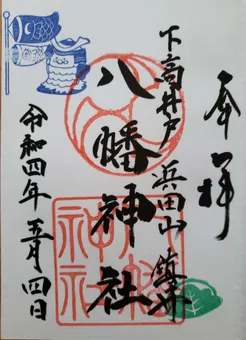 奉拝
下高井戸 浜田山 鎮守
八幡神社
令和四年五月四日
八幡神社